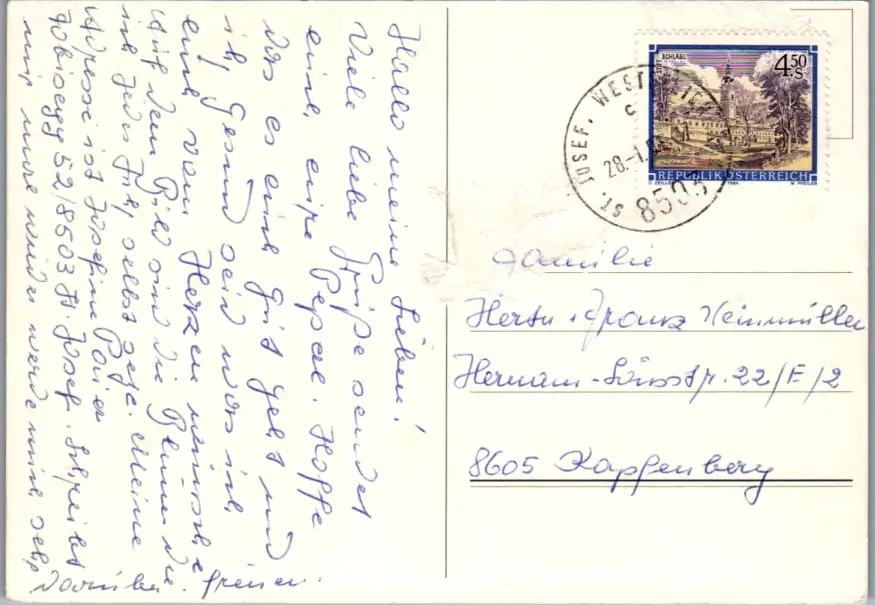 Hallo meine Lieben!
Viele liebe Grüße sendet
euch, eure Pepca. Hoffe
das es euch gut geht und
ich, gesund seid was ich
euch vom Herzen wünsche
Auf dem Bild sind die Blumen die
ich jedes Jahr selbst setze. Meine
Adresse ist Josefine
Tobisegg 52/8503 St. Josef. Schreibt
mir mal wieder werde mich sehr
darüber freuen.
SCHLÄGL
4.50 S
REPUBLIK ÖSTERREICH
1984
ST. JOSEF, WEST
c
28.-1.
8503
Familie
Herta u. Franz Heinmüller
Hermann-Lönsstr. 22/E/2
8605 Kapfenberg